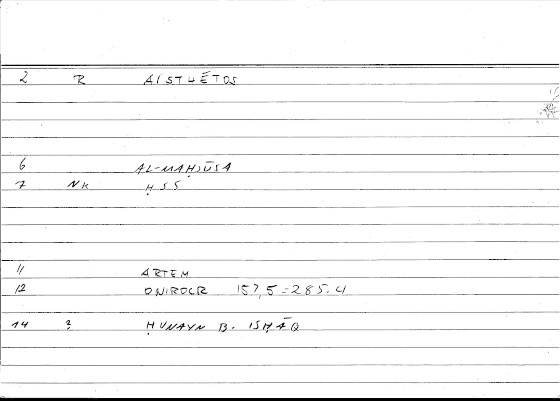 2 R AISTHĒTOS
6 AL-MAḤSŪSA
7 NK ḤSS
11 ARTEM
12 ONIROCR 157,5 = 285.4
14 ? ḤUNAYN B. ISḤĀQ